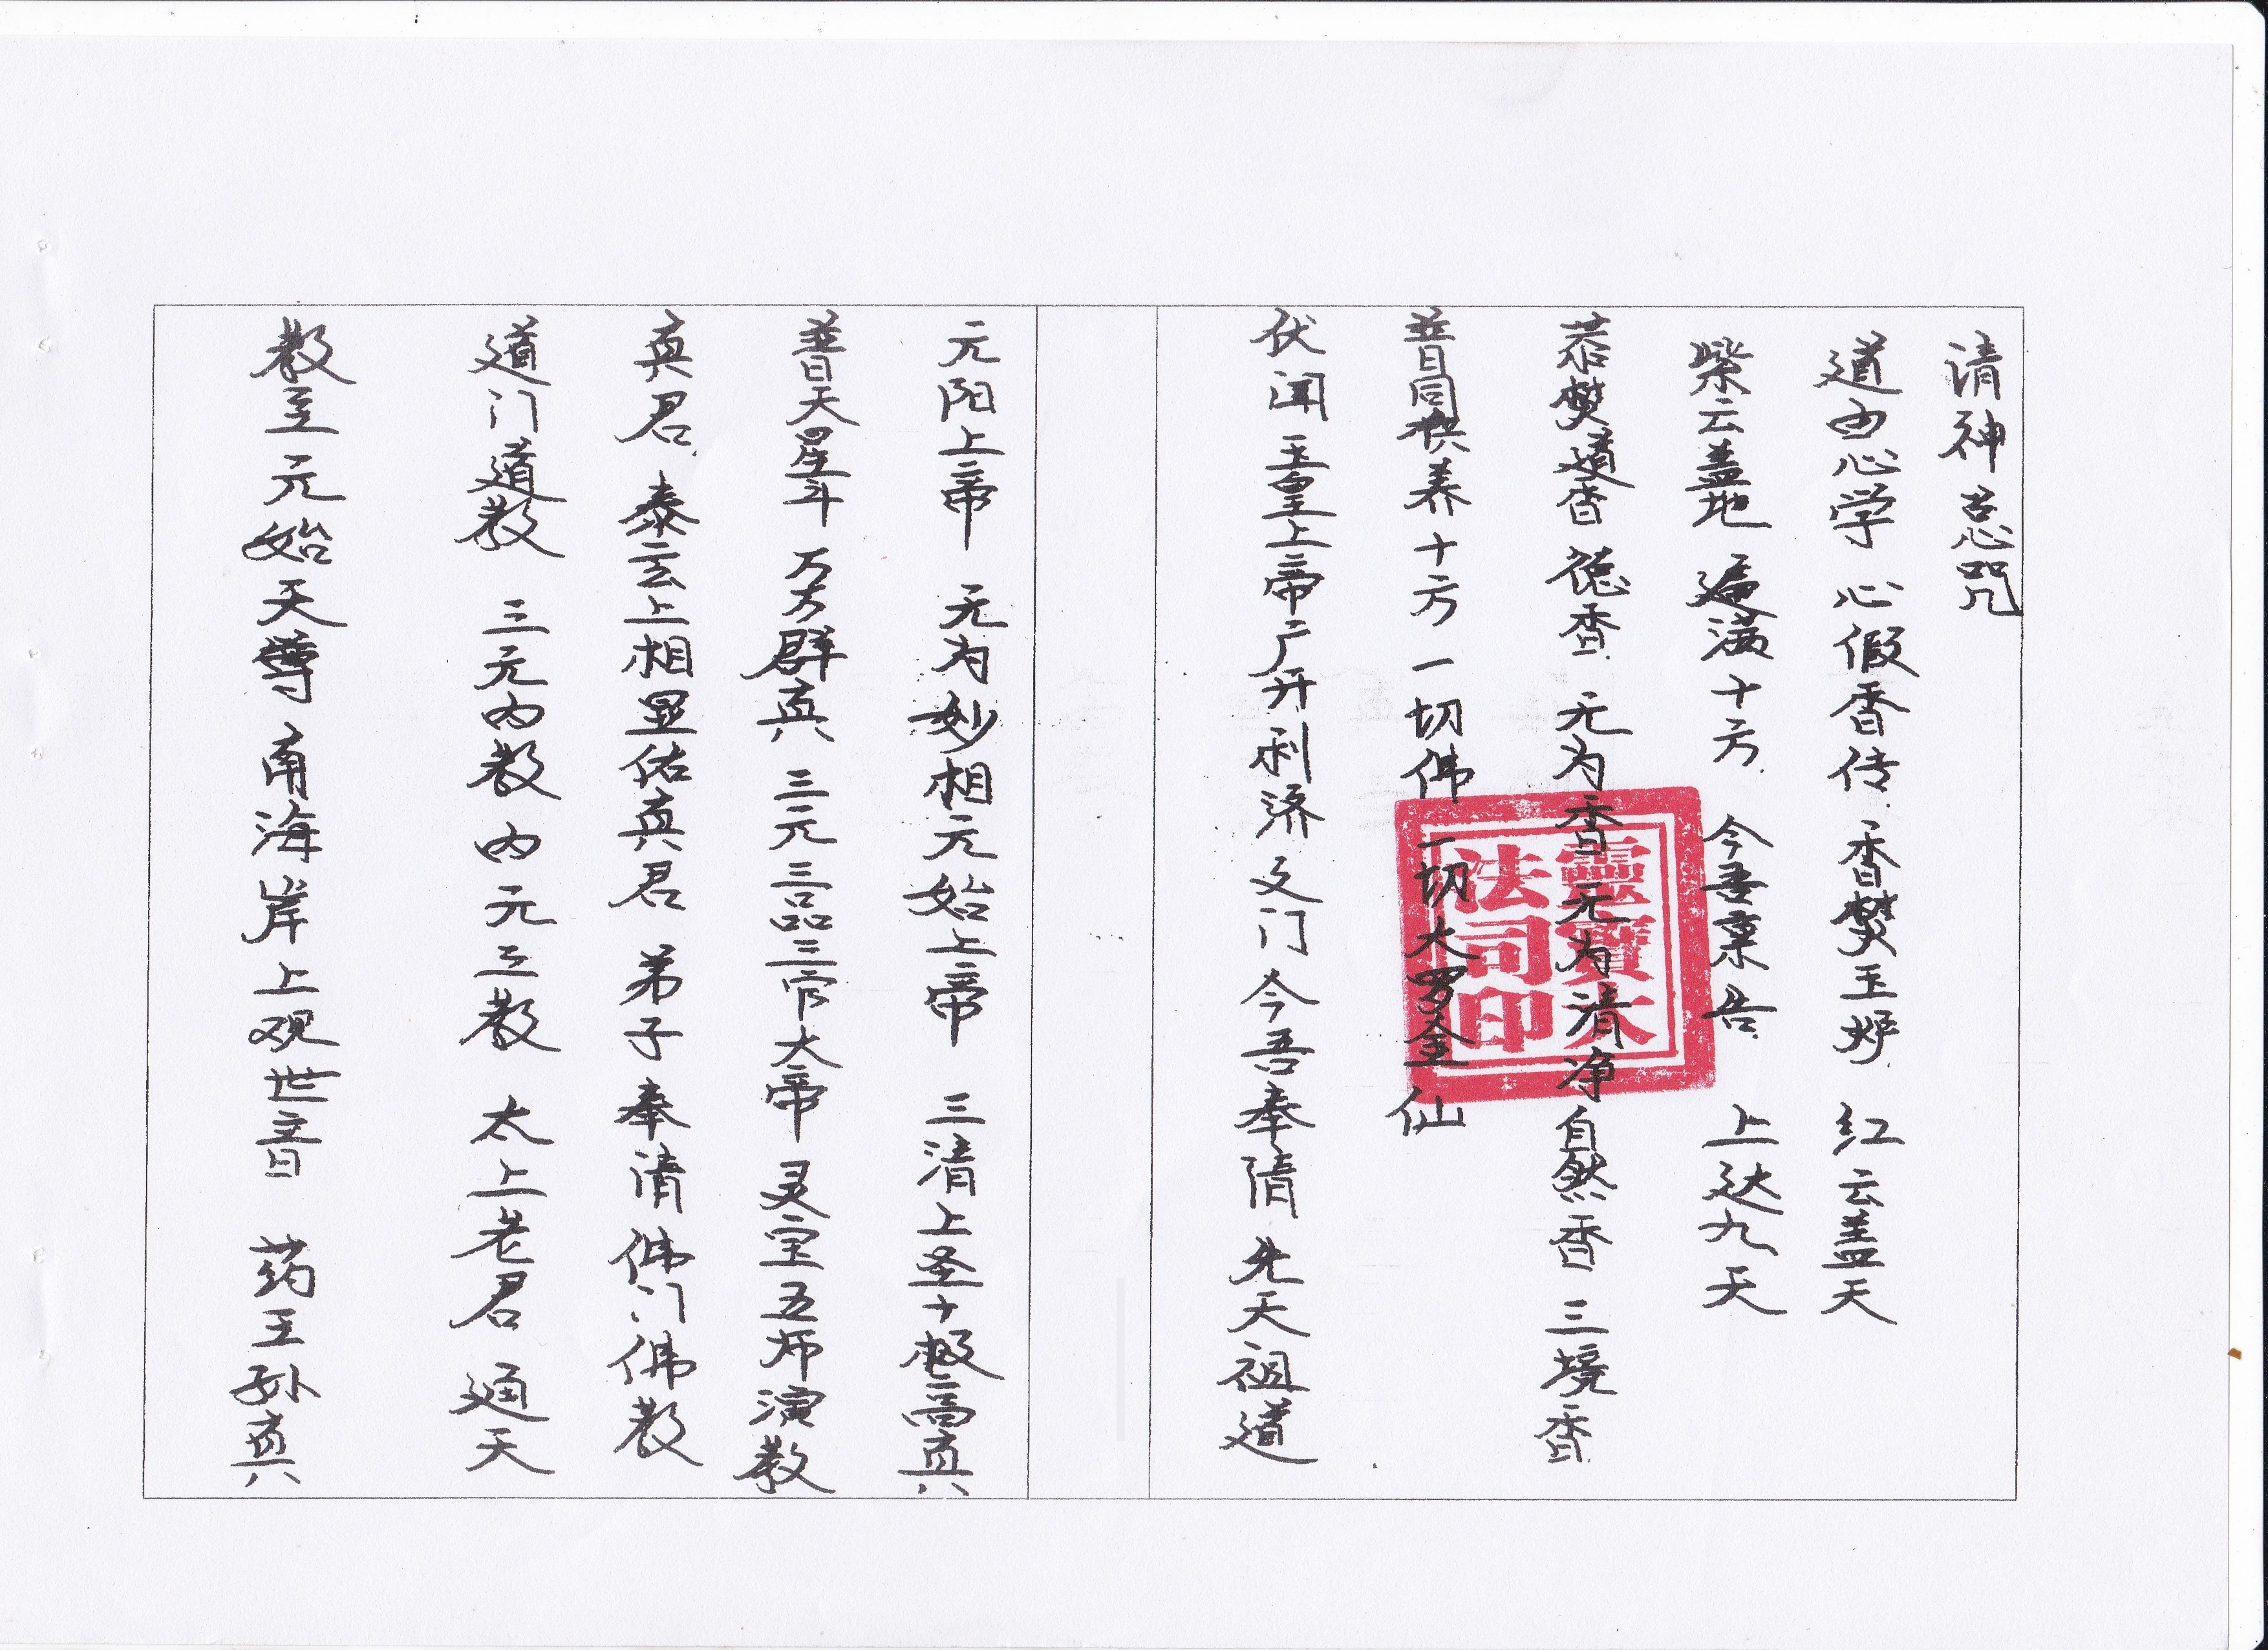 清神总咒
道由心学 心假香传 香焚玉炉 红云盖天
紫云盖地 遍满十方 今吾禀告 上达九天
恭焚道香 德香 元为香 元为清净自然香 三境香
普同供养十方一切佛 一切大罗金仙
伏闻玉皇上帝广开利济之门 今吾奉请 先天祖道
元阳上帝 元为妙相元始上帝 三清上圣十极高真
普天星斗 万万群真 三元三品三官大帝 灵宝五师演教
真君 泰玄上相显佑真君 弟子奉请佛门佛教
道门道教 三元内教 内元三教 太上老君 通天
教主 元始天尊 南海岸上观世音 药王孙真
靈寶大
法司印